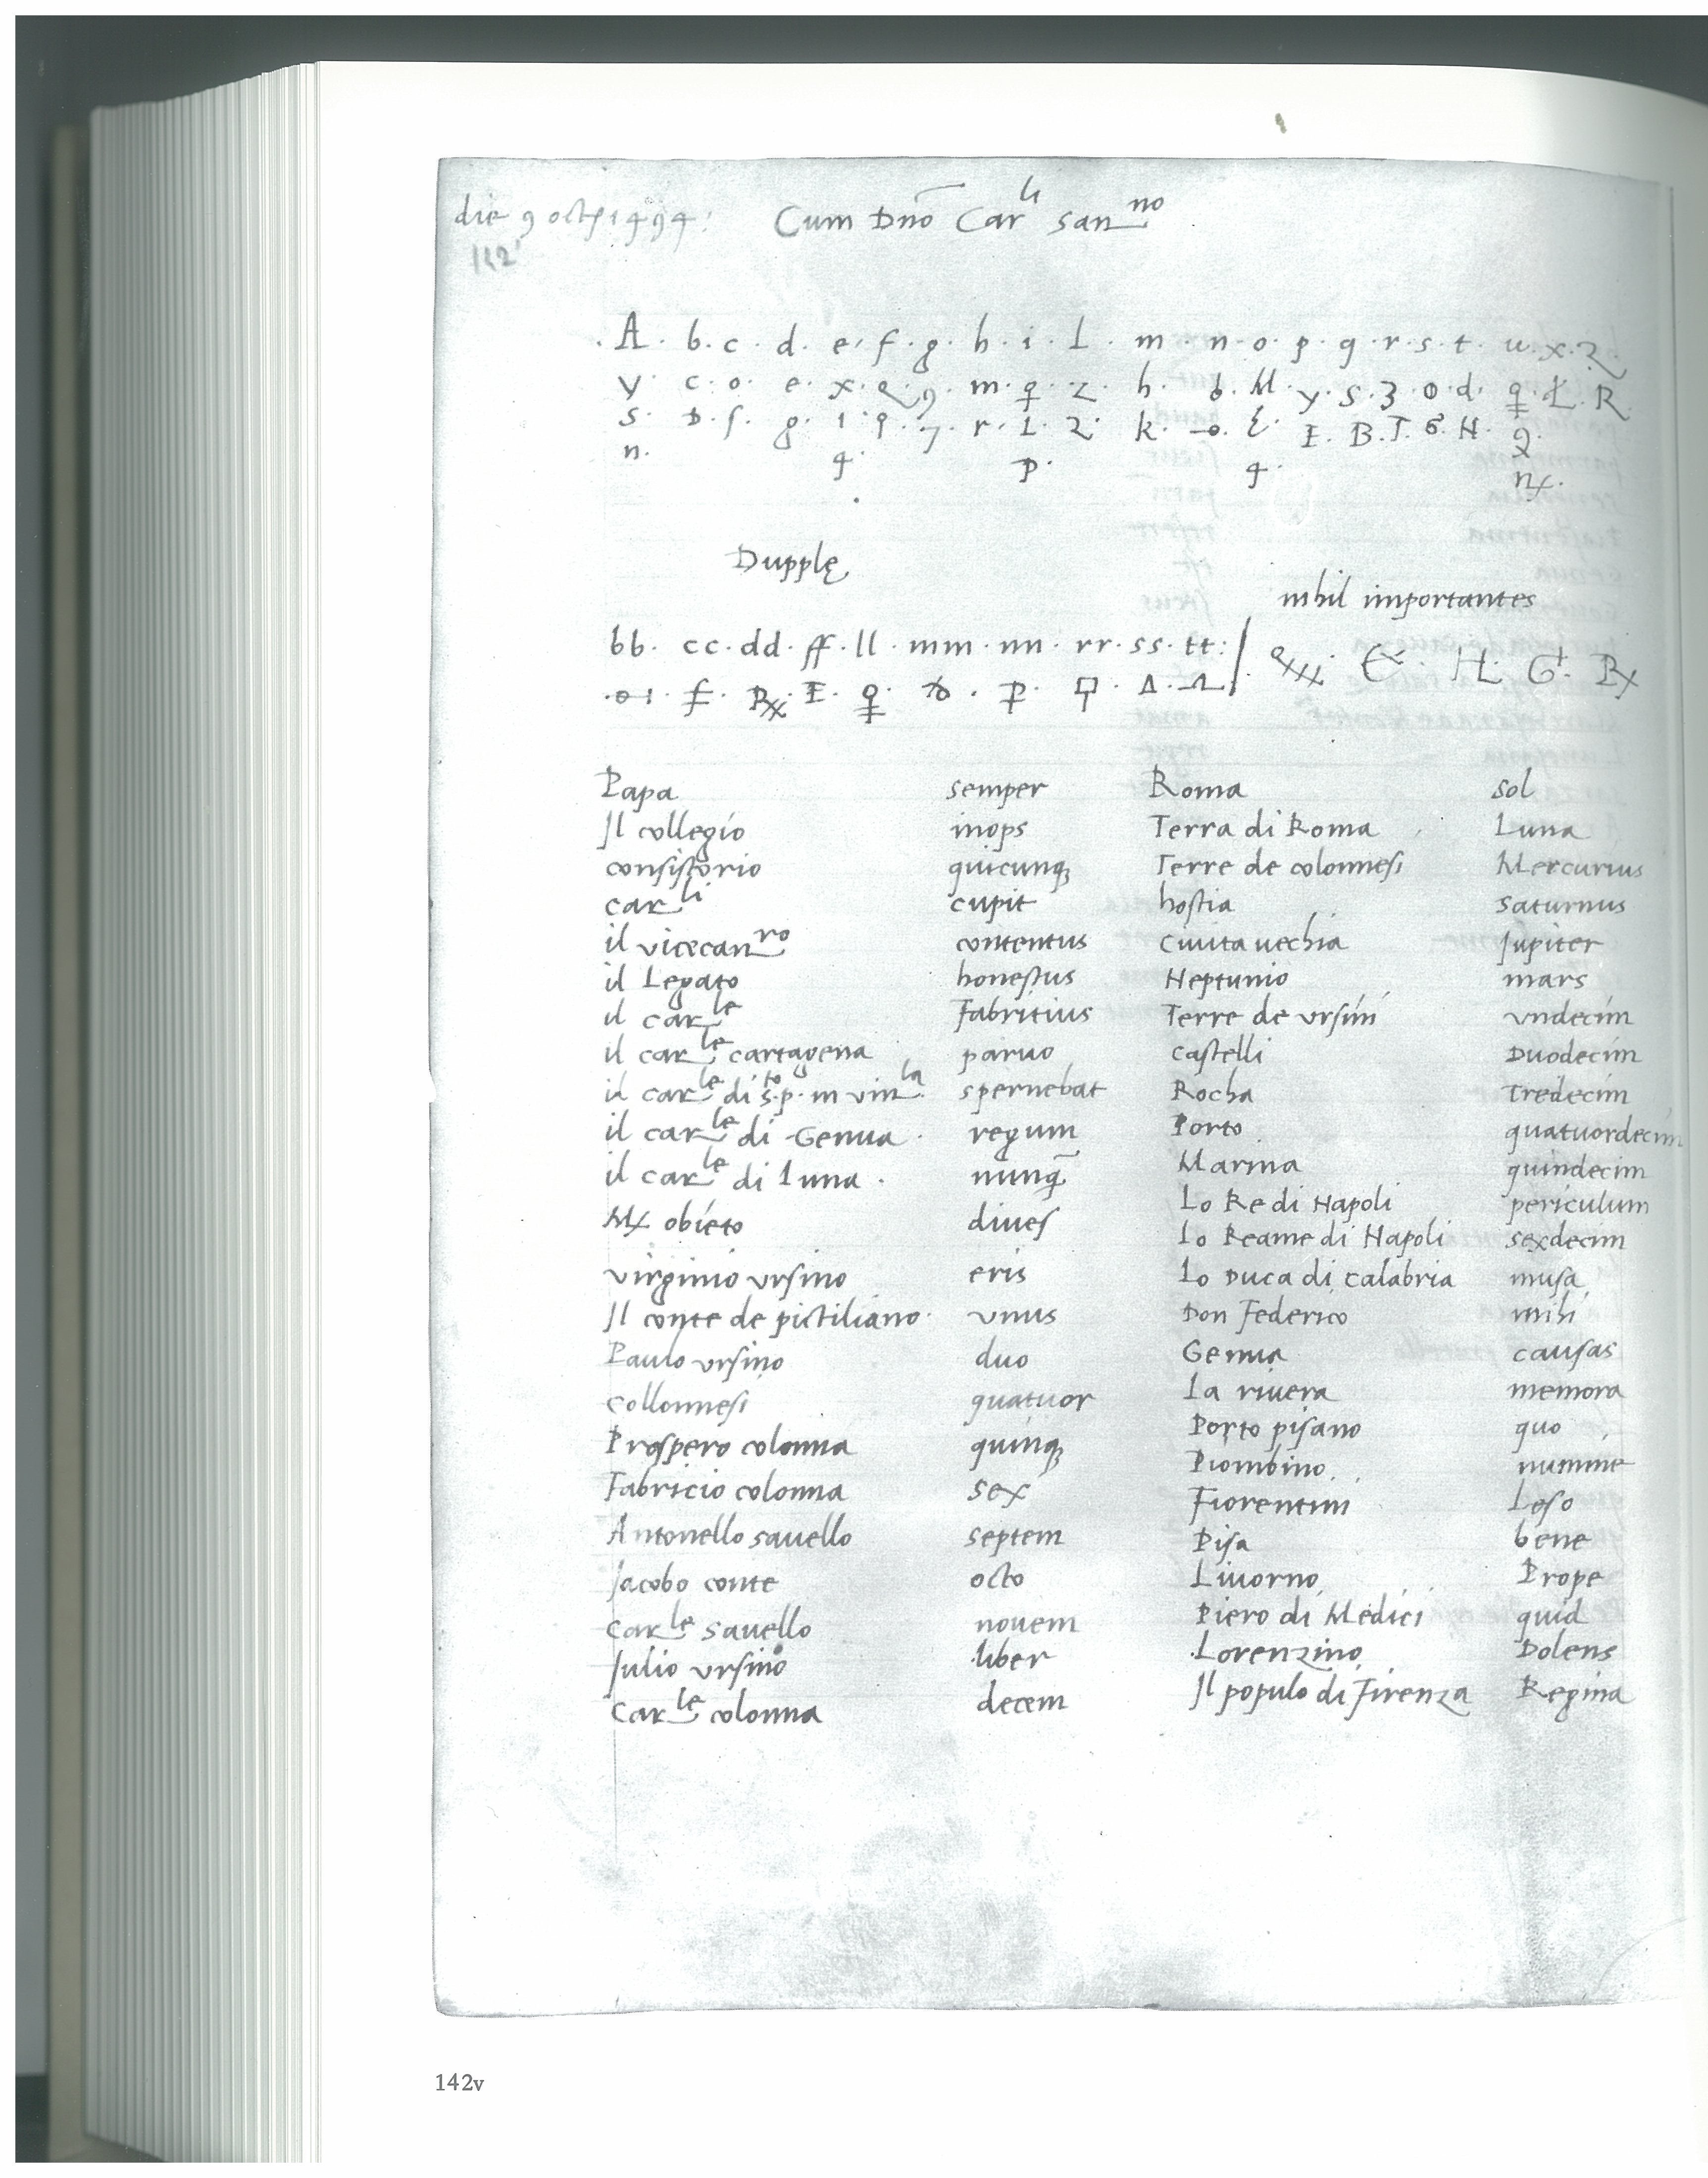 die 9 octr 1494. Cum Dno Car li san no
112
A. b. c. d. e. f. g. h. i. l. m. n. o. p. q. r. s. t. u. x. z.
y. c. o. e. x. m. z. h. b. M. y. s. 3. o. d. R.
s. D. f. g. 1. 9. r. 1. 2. k. E. B. T. 6. H.
n. q. p. q. nx.
Dupplę
nihil importantes
bb. cc. dd. ff. ll. mm. nn. rr. ss. tt:
Papa semper Roma sol
Il collegio inops Terra di Roma Luna
consistorio quicunq Terre de colonnesi Mercurius
car li cupit hostia saturnus
il vicecan ro contentus Ciuita uechia Jupiter
il Legato honestus Neptunio mars
il car le Fabritius Terre de vrsini vndecim
il car le cartagena paruo castelli Duodecim
il car le di s to p. in vin la spernebat Rocha Tredecim
il car le di Genua. regum Porto quatuordecim
il car le di luna. nunq̃ Marina quindecim
Mx obieto diues Lo Re di Napoli periculum
Lo Reame di Napoli sexdecim
virginio vrsino eris Lo Duca di calabria musa
Il conte de pictiliano. vnus Don Federico mihi
Paulo vrsino duo Genua causas
collonnesi quatuor La riuera memora
Prospero colonna quinq Porto pisano quo
Fabricio colonna sex Piombino numine
Antonello sauello septem Fiorentini Leso
Jacobo conte octo Pisa bene
Car le sauello nouem Liuorno Prope
Julio vrsino liber Piero di Medici quid
Car le colonna decem Lorenzino Dolens
Il populo di Firenza Regina
142v